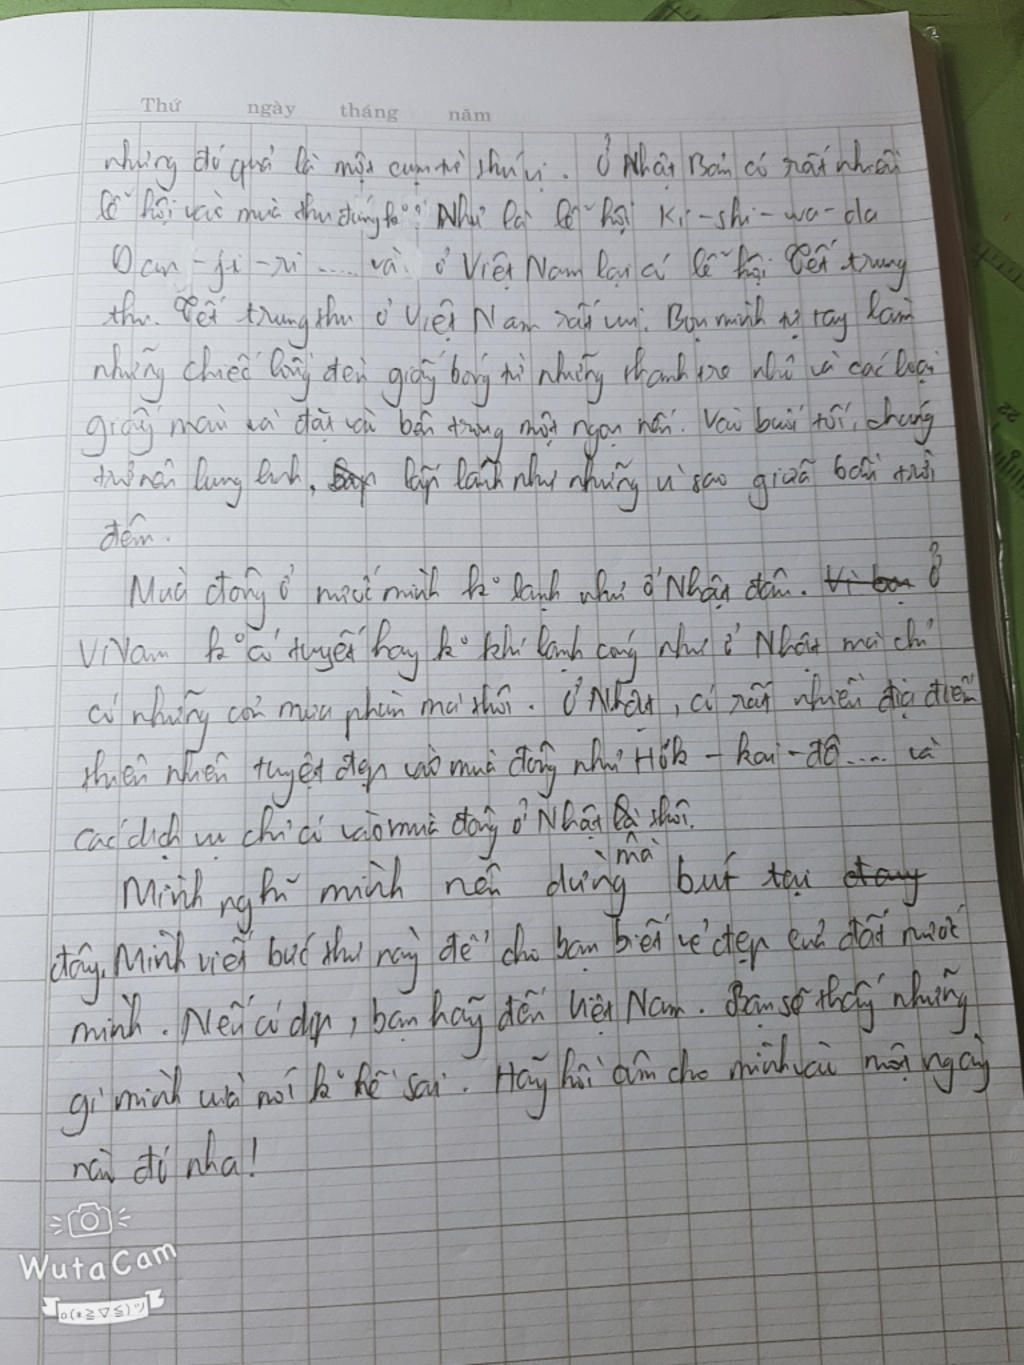 Thứ ngày tháng năm
những đó quả là một cụm từ thú vị. Ở Nhật Bản có rất nhiều
lễ hội vào mùa thu đúng k°? Như là lễ hội Ki-shi-wa-da
Dan-ji-ri ..... và ở Việt Nam lại có lễ hội Tết trung
thu. Tết trung thu ở Việt Nam rất vui. Bọn mình tự tay làm
những chiếc lồng đèn giấy bóng từ những thanh tre nhỏ và các loại
giấy màu và đặt vào bên trong một ngọn nến. Vào buổi tối, chúng
trở nên lung linh, lấp lánh như những vì sao giữa bầu trời
đêm.
Mùa đông ở nước mình k° lạnh như ở Nhật đâu. Vì bạn Ở
ViNam k° có tuyết hay k° khí lạnh cóng như ở Nhật mà chỉ
có những cơn mưa phùn mà thôi. Ở Nhật, có rất nhiều địa điểm
thiên nhiên tuyệt đẹp vào mùa đông như Hốk-kai-đô.... và
các dịch vụ chỉ có vào mùa đông ở Nhật là thôi.
Mình nghĩ mình nên dừng bút tại
đây. Mình viết bức thư này để cho bạn biết vẻ đẹp của đất nước
mình. Nếu có dịp, bạn hãy đến Việt Nam. Bạn sẽ thấy những
gì mình vừa nói k° hề sai. Hãy hồi âm cho mình vào một ngày
nào đó nha!
WutaCam
o(*≧▽≦)ツ